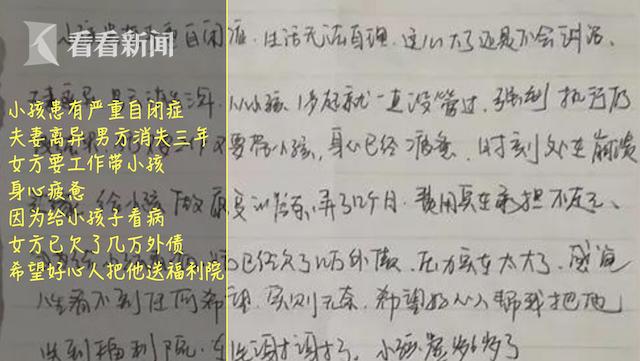 看看新闻
小孩患有严重自闭症
夫妻离异 男方消失三年
女方要工作带小孩
身心疲惫
因为给小孩子看病
女方已欠了几万外债
希望好心人把他送福利院
自闭症.生活无法自理.这么大了还是不会讲话.
男方消失三年.从小孩1岁起就一直没管过.强制执行仍
工作又要带小孩,身心已经疲惫.时刻处在崩溃
给小孩做康复训练,弄了12个月.费用实在承担不起了、
已经欠了几万外债.压力实在太大了.感觉
人生看不到任何希望.实则无奈.希望好心人帮我把他
送到福利院.谢谢了.小孩